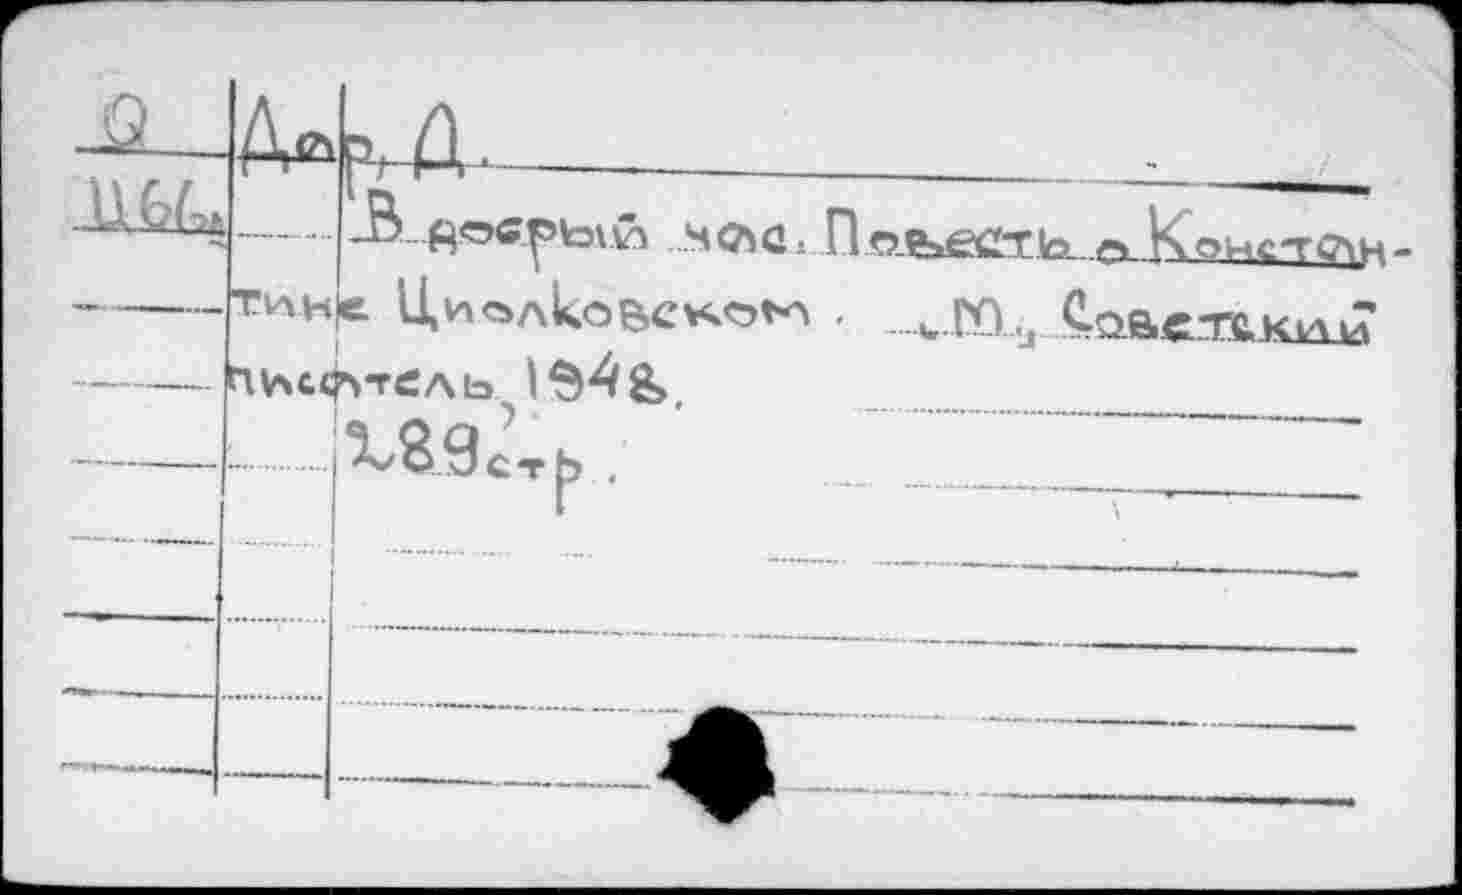 9 Дар, Д.
Ц66 В добрый час. Повесть о Констан-
тине Циолковском. М., Советский
писатель, 1948.
289 стр.